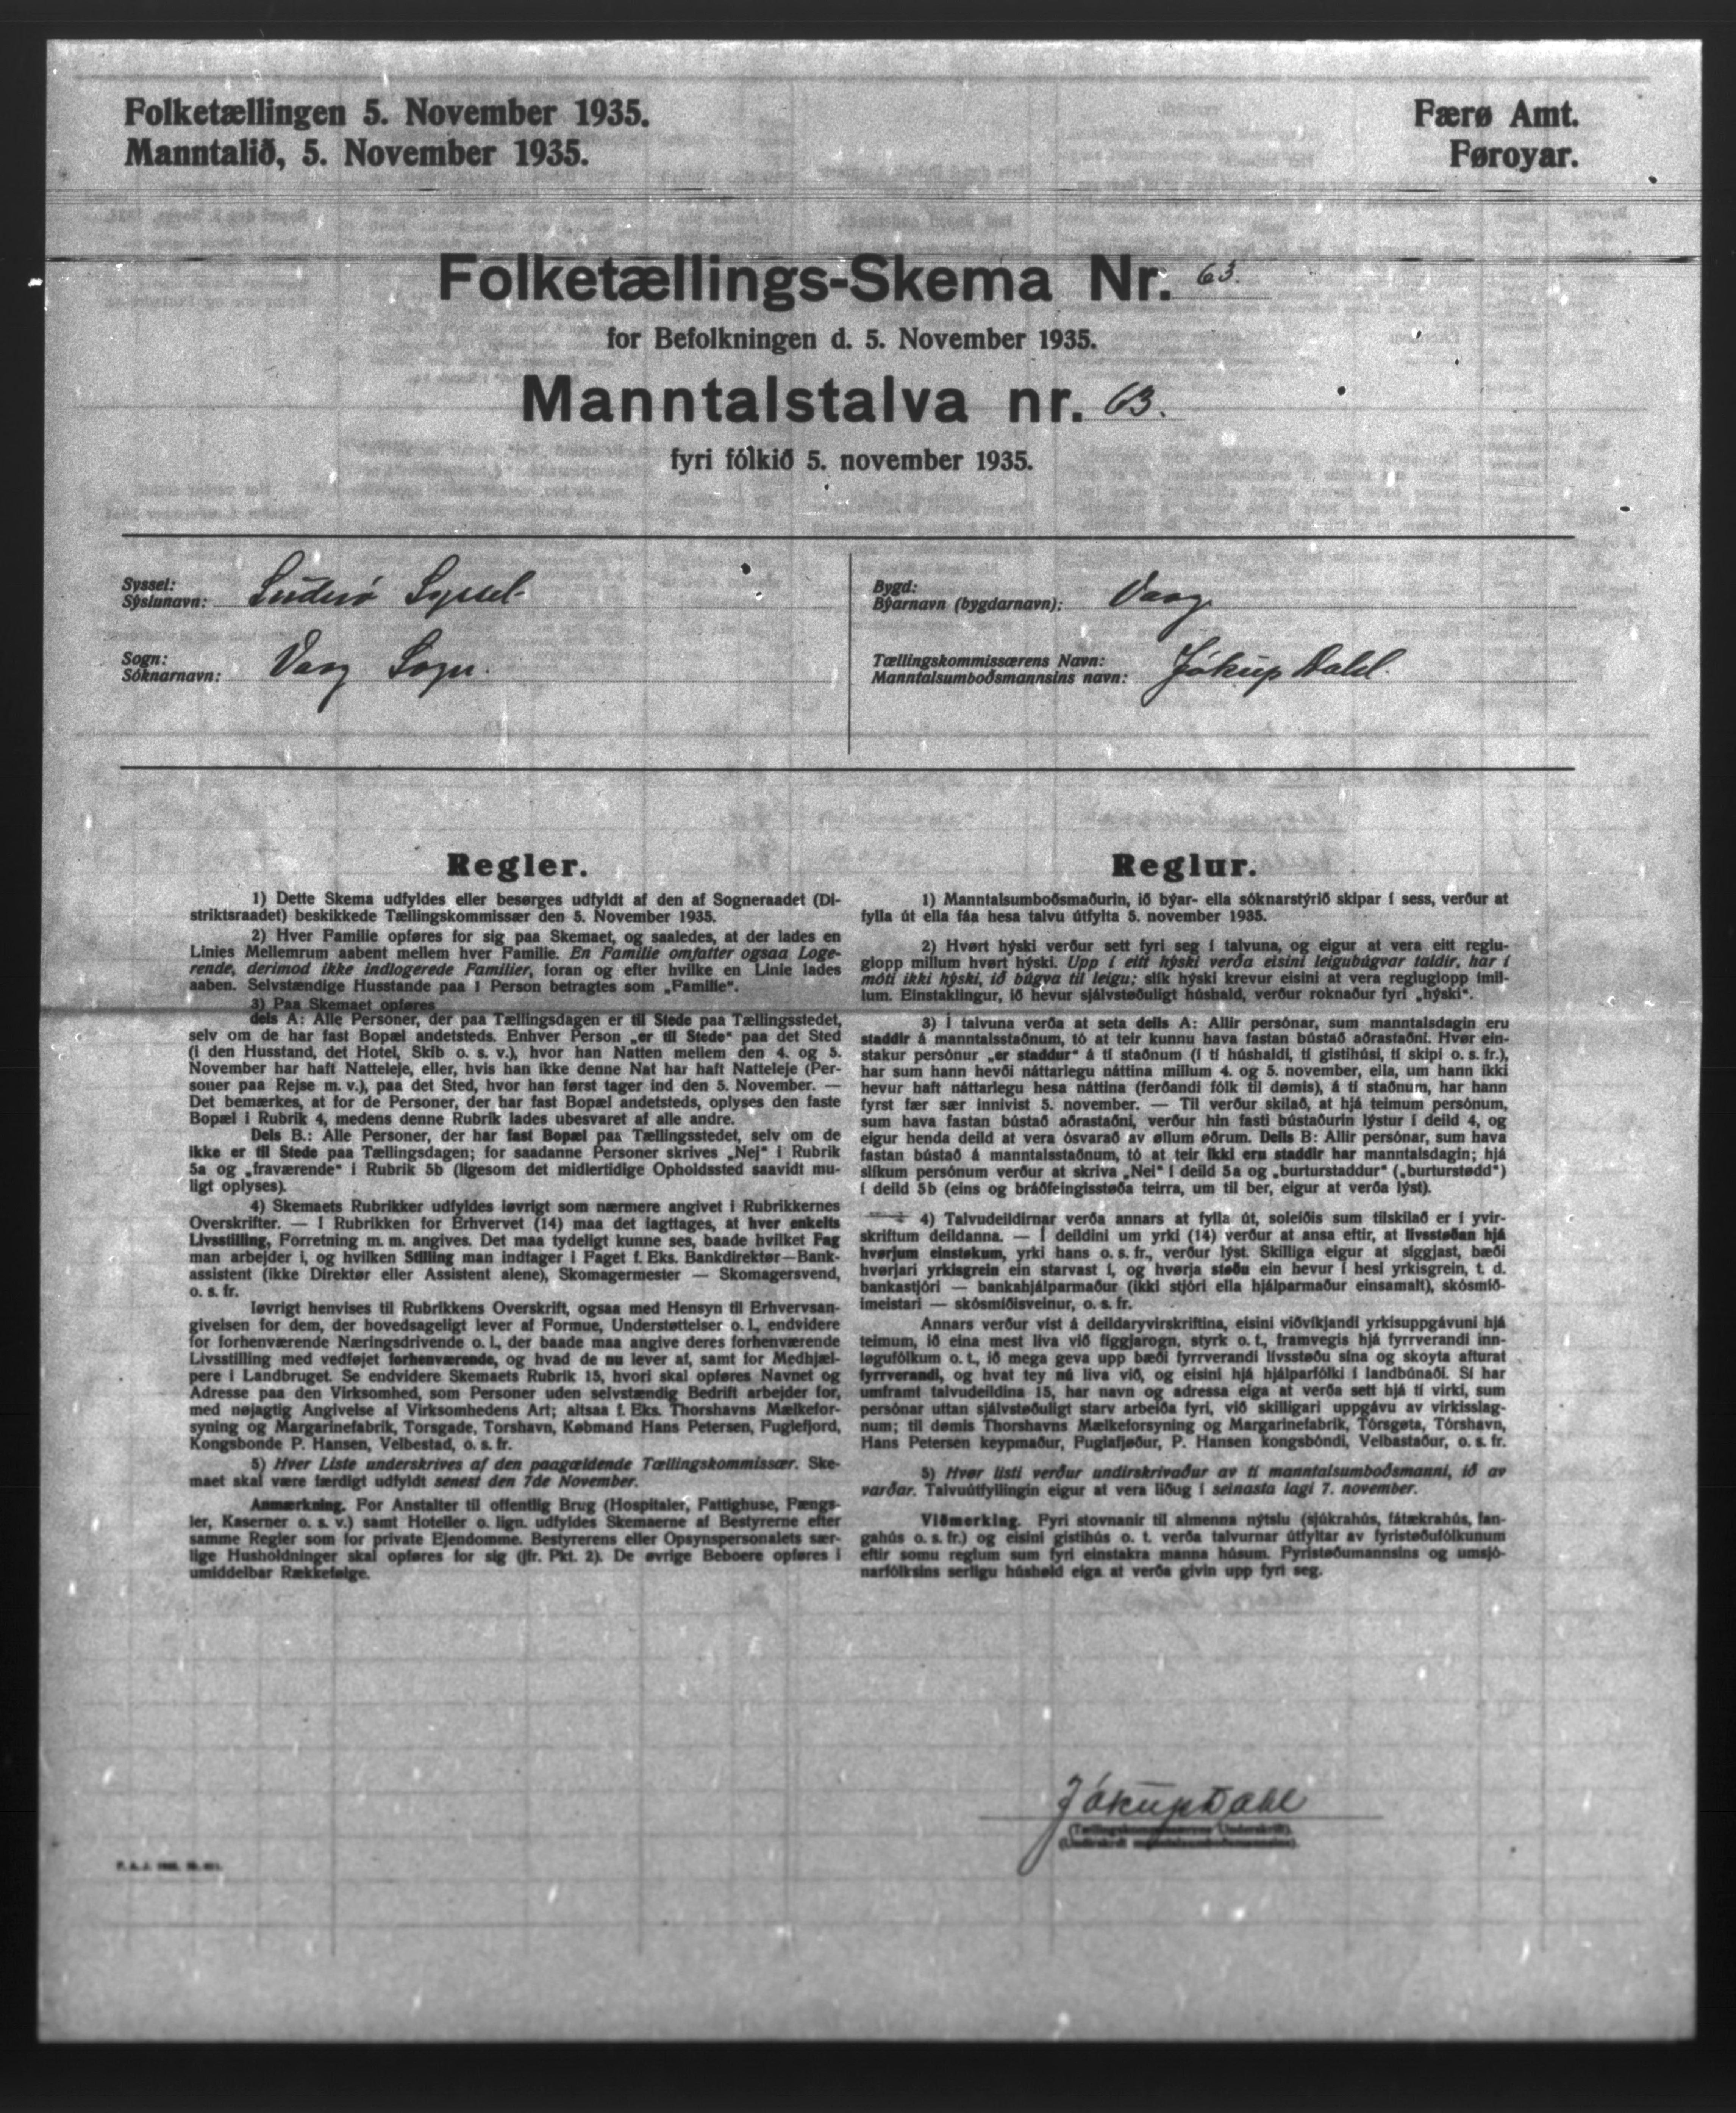 Folketællingen 5. November 1935.
Manntalið, 5. November 1935.
Færø Amt.
Føroyar.
Folketællings-Skema Nr. 63.
for Befolkningen d. 5. November 1935.
Manntalstalva nr. 63.
fyri fólkið 5. november 1935.
Syssel:
Sýslunavn: Suderø Syssel
Sogn:
Sóknarnavn: Vaag Sogn.
Bygd:
Býarnavn (bygdarnavn): Vaag
Tællingskommissærens Navn:
Manntalsumboðsmannsins navn: Jókup Dahl.
Regler.
1) Dette Skema udfyldes eller besørges udfyldt af den af Sogneraadet (Di-
striktsraadet) beskikkede Tællingskommissær den 5. November 1935.
2) Hver Familie opføres for sig paa Skemaet, og saaledes, at der lades en
Linies Mellemrum aabent mellem hver Familie. En Familie omfatter ogsaa Loge-
rende, derimod ikke indlogerede Familier, foran og efter hvilke en Linie lades
aaben. Selvstændige Husstande paa 1 Person betragtes som „Familie“.
3) Paa Skemaet opføres
dels A: Alle Personer, der paa Tællingsdagen er til Stede paa Tællingsstedet,
selv om de har fast Bopæl andetsteds. Enhver Person „er til Stede“ paa det Sted
(i den Husstand, det Hotel, Skib o. s. v.), hvor han Natten mellem den 4. og 5.
November har haft Natteleje, eller, hvis han ikke denne Nat har haft Natteleje (Per-
soner paa Rejse m. v.), paa det Sted, hvor han først tager ind den 5. November. —
Det bemærkes, at for de Personer, der har fast Bopæl andetsteds, oplyses den faste
Bopæl i Rubrik 4, medens denne Rubrik lades ubesvaret af alle andre.
Dels B.: Alle Personer, der har fast Bopæl paa Tællingsstedet, selv om de
ikke er til Stede paa Tællingsdagen; for saadanne Personer skrives „Nej“ i Rubrik
5a og „fraværende“ i Rubrik 5b (ligesom det midlertidige Opholdssted saavidt mu-
ligt oplyses).
4) Skemaets Rubrikker udfyldes iøvrigt som nærmere angivet i Rubrikkernes
Overskrifter. — I Rubrikken for Erhvervet (14) maa det iagttages, at hver enkelts
Livsstilling, Forretning m. m. angives. Det maa tydeligt kunne ses, baade hvilket Fag
man arbejder i, og hvilken Stilling man indtager i Faget f. Eks. Bankdirektør—Bank-
assistent (ikke Direktør eller Assistent alene), Skomagermester — Skomagersvend,
o. s. fr.
Iøvrigt henvises til Rubrikkens Overskrift, ogsaa med Hensyn til Erhvervsan-
givelsen for dem, der hovedsageligt lever af Formue, Understøttelser o. l., endvidere
for forhenværende Næringsdrivende o. l., der baade maa angive deres forhenværende
Livsstilling med vedføjet forhenværende, og hvad de nu lever af, samt for Medhjæl-
pere i Landbruget. Se endvidere Skemaets Rubrik 15, hvori skal opføres Navnet og
Adresse paa den Virksomhed, som Personer uden selvstændig Bedrift arbejder for,
med nøjagtig Angivelse af Virksomhedens Art; altsaa f. Eks. Thorshavns Mælkefor-
syning og Margarinefabrik, Torsgade, Torshavn, Købmand Hans Petersen, Fuglefjord,
Kongsbonde P. Hansen, Velbestad, o. s. fr.
5) Hver Liste underskrives af den paagældende Tællingskommissær. Ske-
maet skal være færdigt udfyldt senest den 7de November.
Anmærkning. For Anstalter til offentlig Brug (Hospitaler, Fattighuse, Fængs-
ler, Kaserner o. s. v.) samt Hoteller o. lign. udfyldes Skemaerne af Bestyrerne efter
samme Regler som for private Ejendomme. Bestyrerens eller Opsynspersonalets sær-
lige Husholdninger skal opføres for sig (jfr. Pkt. 2). De øvrige Beboere opføres i
umiddelbar Rækkefølge.
Reglur.
1) Manntalsumboðsmaðurin, ið býar- ella sóknarstýrið skipar í sess, verður at
fylla út ella fáa hesa talvu útfylta 5. november 1935.
2) Hvørt hýski verður sett fyri seg í talvuna, og eigur at vera eitt reglu-
glopp millum hvørt hýski. Upp í eitt hýski verða eisini leigubúgvar taldir, har í
móti ikki hýski, ið búgva til leigu; slík hýski krevur eisini at vera regluglopp imil-
lum. Einstaklingur, ið hevur sjálvstøðuligt húshald, verður roknaður fyri „hýski“.
3) Í talvuna verða at seta deils A: Allir persónar, sum manntalsdagin eru
staddir á manntalsstaðnum, tó at teir kunnu hava fastan bústað aðrastaðni. Hvør ein-
stakur persónur „er staddur“ á tí staðnum (í tí húshaldi, tí gistihúsi, tí skipi o. s. fr.),
har sum hann hevði náttarlegu náttina millum 4. og 5. november, ella, um hann ikki
hevur haft náttarlegu hesa náttina (ferðandi fólk til dømis), á tí staðnum, har hann
fyrst fær sær innivist 5. november. — Til verður skilað, at hjá teimum persónum,
sum hava fastan bústað aðrastaðni, verður hin fasti bústaðurin lýstur í deild 4, og
eigur henda deild at vera ósvarað av øllum øðrum. Deils B: Allir persónar, sum hava
fastan bústað á manntalsstaðnum, tó at teir ikki eru staddir har manntalsdagin; hjá
slíkum persónum verður at skriva „Nei“ í deild 5a og „burturstaddur“ („burturstødd“)
í deild 5b (eins og bráðfeingisstøða teirra, um til ber, eigur at verða lýst).
4) Talvudeildirnar verða annars at fylla út, soleiðis sum tilskilað er í yvir-
skriftum deildanna. — Í deildini um yrki (14) verður at ansa eftir, at livsstøðan hjá
hvørjum einstøkum, yrki hans o. s. fr., verður lýst. Skilliga eigur at síggjast, bæði
hvørjari yrkisgrein ein starvast í, og hvørja støðu ein hevur í hesi yrkisgrein, t. d.
bankastjóri — bankahjálparmaður (ikki stjóri ella hjálparmaður einsamalt), skósmið-
imeistari — skósmiðisveinur, o. s. fr.
Annars verður víst á deildaryvirskriftina, eisini viðvíkjandi yrkisuppgávuni hjá
teimum, ið eina mest liva við figgjarogn, styrk o. t., framvegis hjá fyrrverandi inn-
løgufólkum o. t., ið mega geva upp bæði fyrrverandi livsstøðu sína og skoyta afturat
fyrrverandi, og hvat tey nú liva við, og eisini hjá hjálparfólki í landbúnaði. Sí har
umframt talvudeildina 15, har navn og adressa eiga at verða sett hjá tí virki, sum
persónar uttan sjálvstøðuligt starv arbeiða fyri, við skilligari uppgávu av virkisslag-
num; til dømis Thorshavns Mælkeforsyning og Margarinefabrik, Tórsgøta, Tórshavn,
Hans Petersen keypmaður, Fuglafjøður, P. Hansen kongsbóndi, Velbastaður, o. s. fr.
5) Hvør listi verður undirskrivaður av tí manntalsumboðsmanni, ið av
varðar. Talvuútfyllingin eigur at vera liðug í seinasta lagi 7. november.
Viðmerking. Fyri stovnanir til almenna nýtslu (sjúkrahús, fátækrahús, fan-
gahús o. s. fr.) og eisini gistihús o. t. verða talvurnar útfyltar av fyristøðufólkunum
eftir somu reglum sum fyri einstakra manna húsum. Fyristøðumannsins og umsjó-
narfólksins serligu húshøld eiga at verða givin upp fyri seg.
Jókup Dahl
(Tællingskommissærens Underskrift).
(Undirskrift manntalsumboðsmannsins).